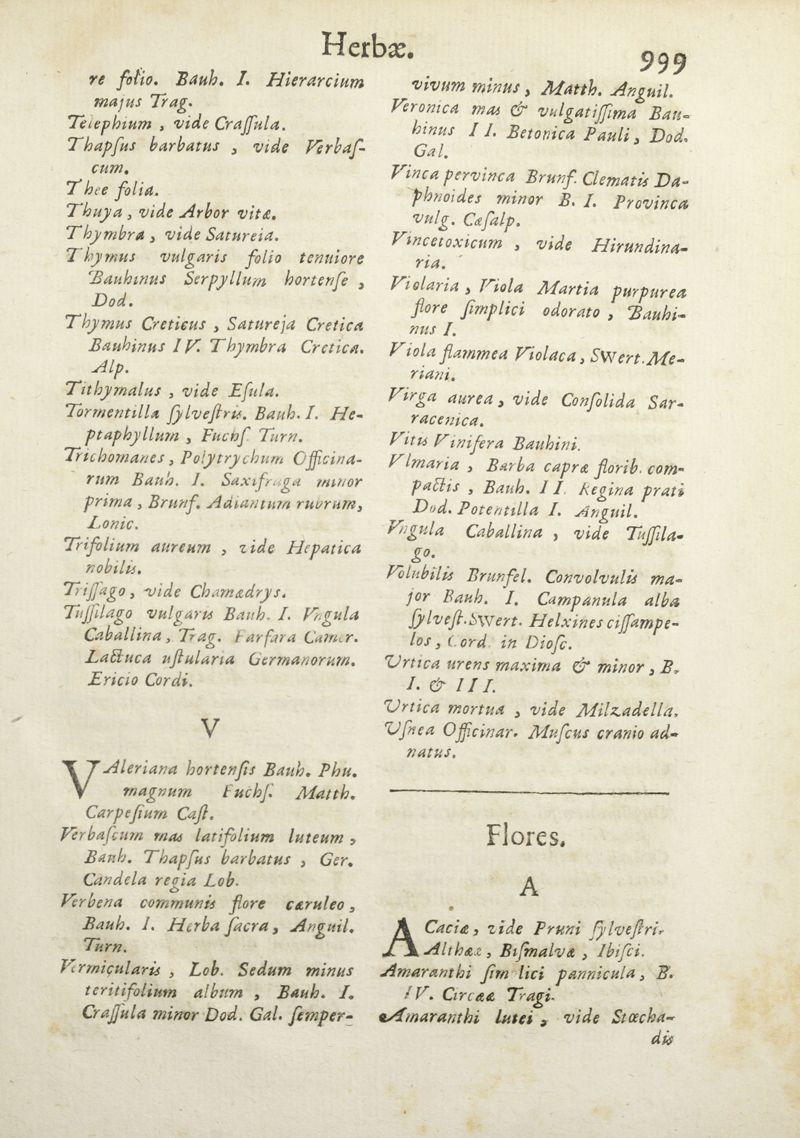 Herbæ.
999
re folio. Bauh. I. Hierarcium
majus Trag.
Telephium , vide Craſſula.
Thapſus barbatus , vide Verbaſ-
cum.
Thee folia.
Thuya , vide Arbor vitæ.
Thymbra , vide Satureia.
Thymus vulgaris folio tenuiore
Bauhinus Serpyllum hortenſe ,
Dod.
Thymus Creticus , Satureja Cretica
Bauhinus IV. Thymbra Cretica.
Alp.
Tithymalus , vide Eſula.
Tormentilla ſylveſtris. Bauh. I. He-
ptaphyllum , Fuchſ. Turn.
Trichomanes , Polytrychum Officina-
rum Bauh. I. Saxifraga minor
prima , Brunf. Adiantum rubrum,
Lonic.
Trifolium aureum , vide Hepatica
nobilis.
Triſſago , vide Chamædrys.
Tuſſilago vulgaris Bauh. I. Vngula
Caballina , Trag. Farfara Camer.
Lactuca uſtularia Germanorum.
Ericio Cordi.
V
VAleriana hortenſis Bauh. Phu.
magnum Fuchſ. Matth.
Carpeſium Caſt.
Verbaſcum mas latifolium luteum ,
Bauh. Thapſus barbatus , Ger.
Candela regia Lob.
Verbena communis flore cæruleo ,
Bauh. I. Herba ſacra , Anguil.
Turn.
Vermicularis , Lob. Sedum minus
teritifolium album , Bauh. I.
Craſſula minor Dod. Gal. ſemper-
vivum minus , Matth. Anguil.
Veronica mas & vulgatiſſima Bau-
hinus II. Betonica Pauli , Dod.
Gal.
Vinca pervinca Brunf. Clematis Da-
phnoides minor B. I. Provinca
vulg. Cæſalp.
Vincetoxicum , vide Hirundina-
ria.
Violaria , Viola Martia purpurea
flore ſimplici odorato , Bauhi-
nus I.
Viola flammea Violaca , SWert. Me-
riani.
Virga aurea , vide Conſolida Sar-
racenica.
Vitis Vinifera Bauhini.
Vlmaria , Barba capræ florib. com-
pactis , Bauh. II. Regina prati
Dod. Potentilla I. Anguil.
Vngula Caballina , vide Tuſſila-
go.
Volubilis Brunfel. Convolvulis ma-
jor Bauh. I. Campanula alba
ſylveſt. SWert. Helxines ciſſampe-
los , Cord. in Dioſc.
Vrtica urens maxima & minor , B.
I. & III.
Vrtica mortua , vide Milzadella.
Vſnea Officinar. Muſcus cranio ad-
natus.
Flores.
A
ACaciæ , vide Pruni ſylveſtris
Althææ , Biſmalvæ , Ibiſci.
Amaranthi ſim lici pannicula , B.
IV. Circææ Tragi.
Amaranthi lutei , vide Stœcha-
dis